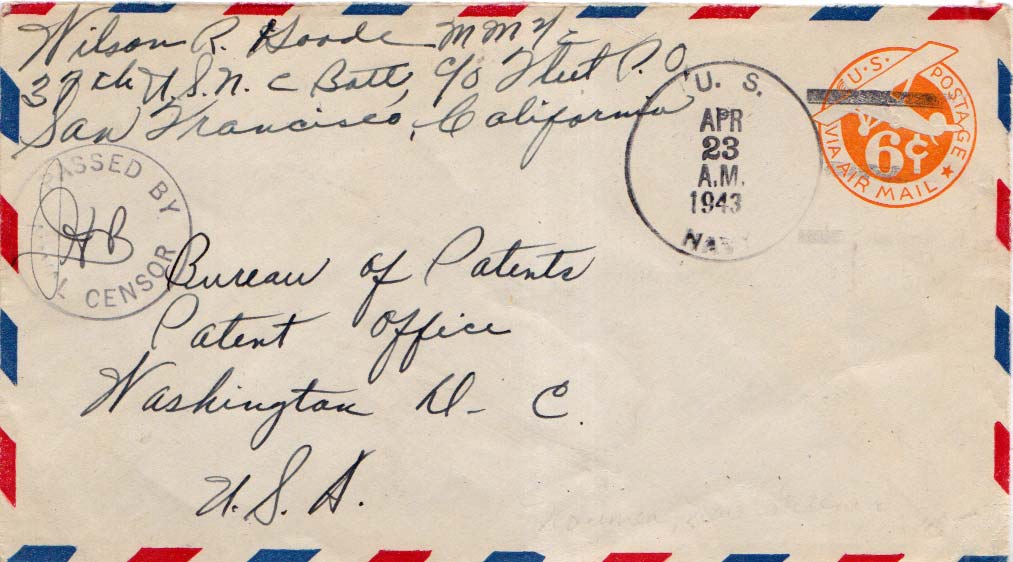 Wilson R. Goode MM
37th U.S.N. C Batt, c/o Fleet P.O.
San Francisco, California
U. S.
APR
23
A.M.
1943
NAVY
U.S. POSTAGE
6¢
VIA AIR MAIL
PASSED BY
HB
CENSOR
Bureau of Patents
Patent Office
Washington D- C.
U. S. A.
Noumea, New